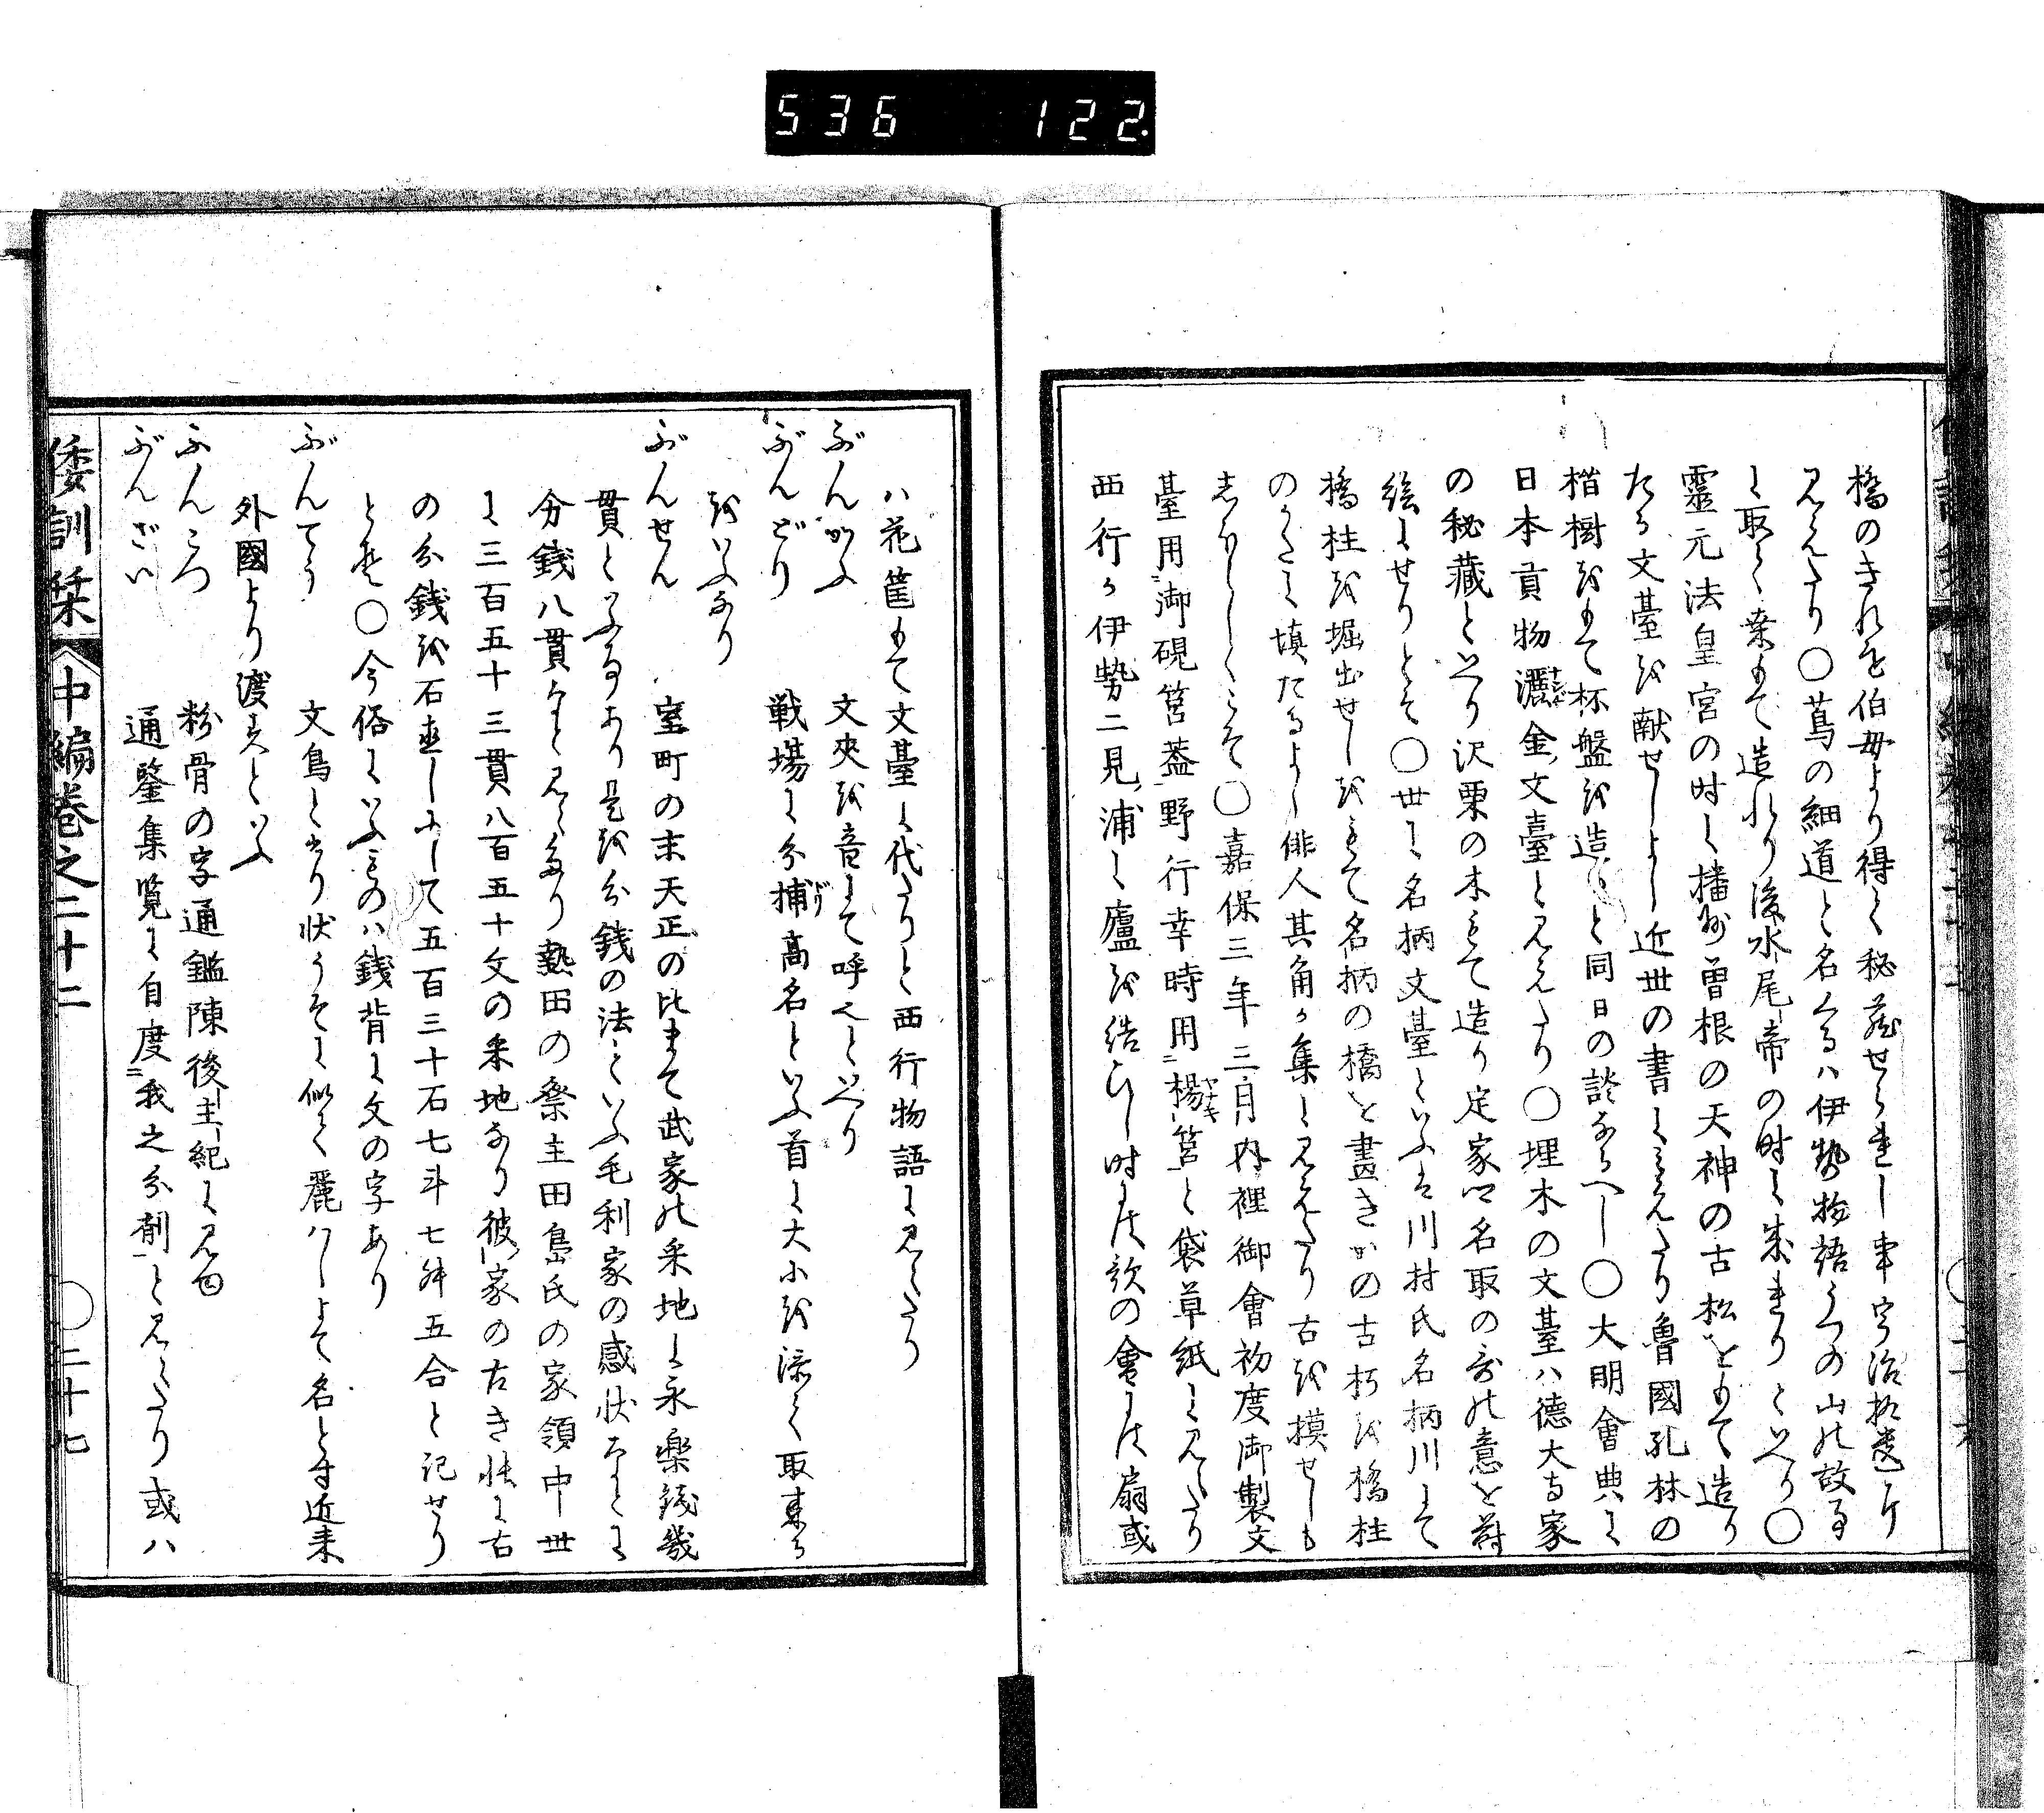 536 122.
橋のきれを伯母より得て秘蔵せられし事宇治拾遺に
見えたり〇蔦の細道と名くるハ伊勢物語うつの山の故事
に取て桑もて造れり後水尾帝の時に来れりといへり〇
靈元法皇宮の時に播州曽根の天神の古松をもて造り
たる文臺を献せしよし近世の書に見えたり魯國孔林の
楷樹をもて杯盤を造ると同日の談なるへし〇大明會典に
日本貢物灑金文臺と見えたり〇埋木の文臺ハ徳大寺家
の秘藏といへり沢栗の木もて造り定家卿名取の哥の意を蒔
絵にせりとそ〇世に名柄文臺といふは川村氏名柄川にて
橋柱を堀出せしをもて名柄の橋を畫きかの古朽を橋柱
のかたに填たるよし俳人其角か集に見えたり古を摸せしも
しほらしくこそ〇嘉保三年三月内裡御會初度御製文
臺用御硯筥蓋野行幸時用楊筥と袋草紙に見えたり
西行か伊勢二見浦に廬を結ひし時には歌の會には扇或
ハ花筐もて文臺に代たりと西行物語に見えたり
ぶんかふ 文夾を音にて呼へしといへり
ぶんどり 戦場に分捕高名といふ首に大小を添て取来る
をいふなり
ぶんせん 室町の末天正の比まて武家の采地に永楽銭幾
貫といふ事あり是を分銭の法といふ毛利家の感状なとに
分銭八貫なと見えたり熱田の祭主田島氏の家領中世
に三百五十三貫八百五十文の采地なり彼家の古き帳に古
の分銭を石直しにして五百三十石七斗七舛五合と記せり
とそ〇今俗にいふものハ銭背に文の字あり
ぶんてう 文鳥と書り状うそに似て麗ハしよて名とす近来
外國より渡すといふ
ふんこつ 粉骨の字通鑑陳後主紀に見ゆ
ぶんざい 通鑒集覧に自度我之分劑と見えたり或ハ
倭訓栞 中編巻之二十二 〇二十七